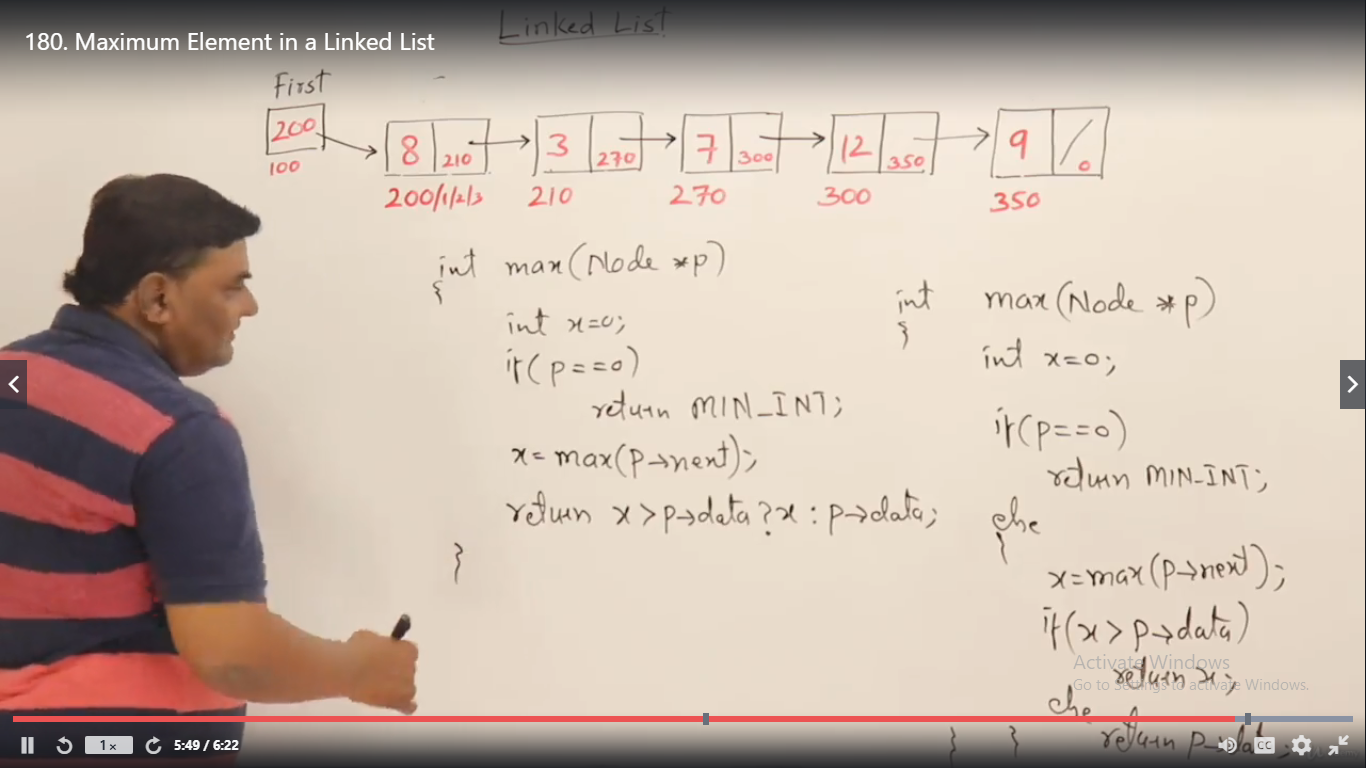 Linked List
180. Maximum Element in a Linked List
First
200
100
8 210
3 270
7 300
12 350
9 0
200/1/2/3
210
270
300
350
int max(Node *p)
{
int x=0;
if(p==0)
return MIN_INT;
x=max(p→next);
return x>p→data?x:p→data;
}
int max(Node *p)
{
int x=0;
if(p==0)
return MIN_INT;
else
{
x=max(p→next);
if(x>p→data)
return x;
else
return p→data;
}
}
Activate Windows
Go to Settings to activate Windows.
1x
5:49 / 6:22
CC